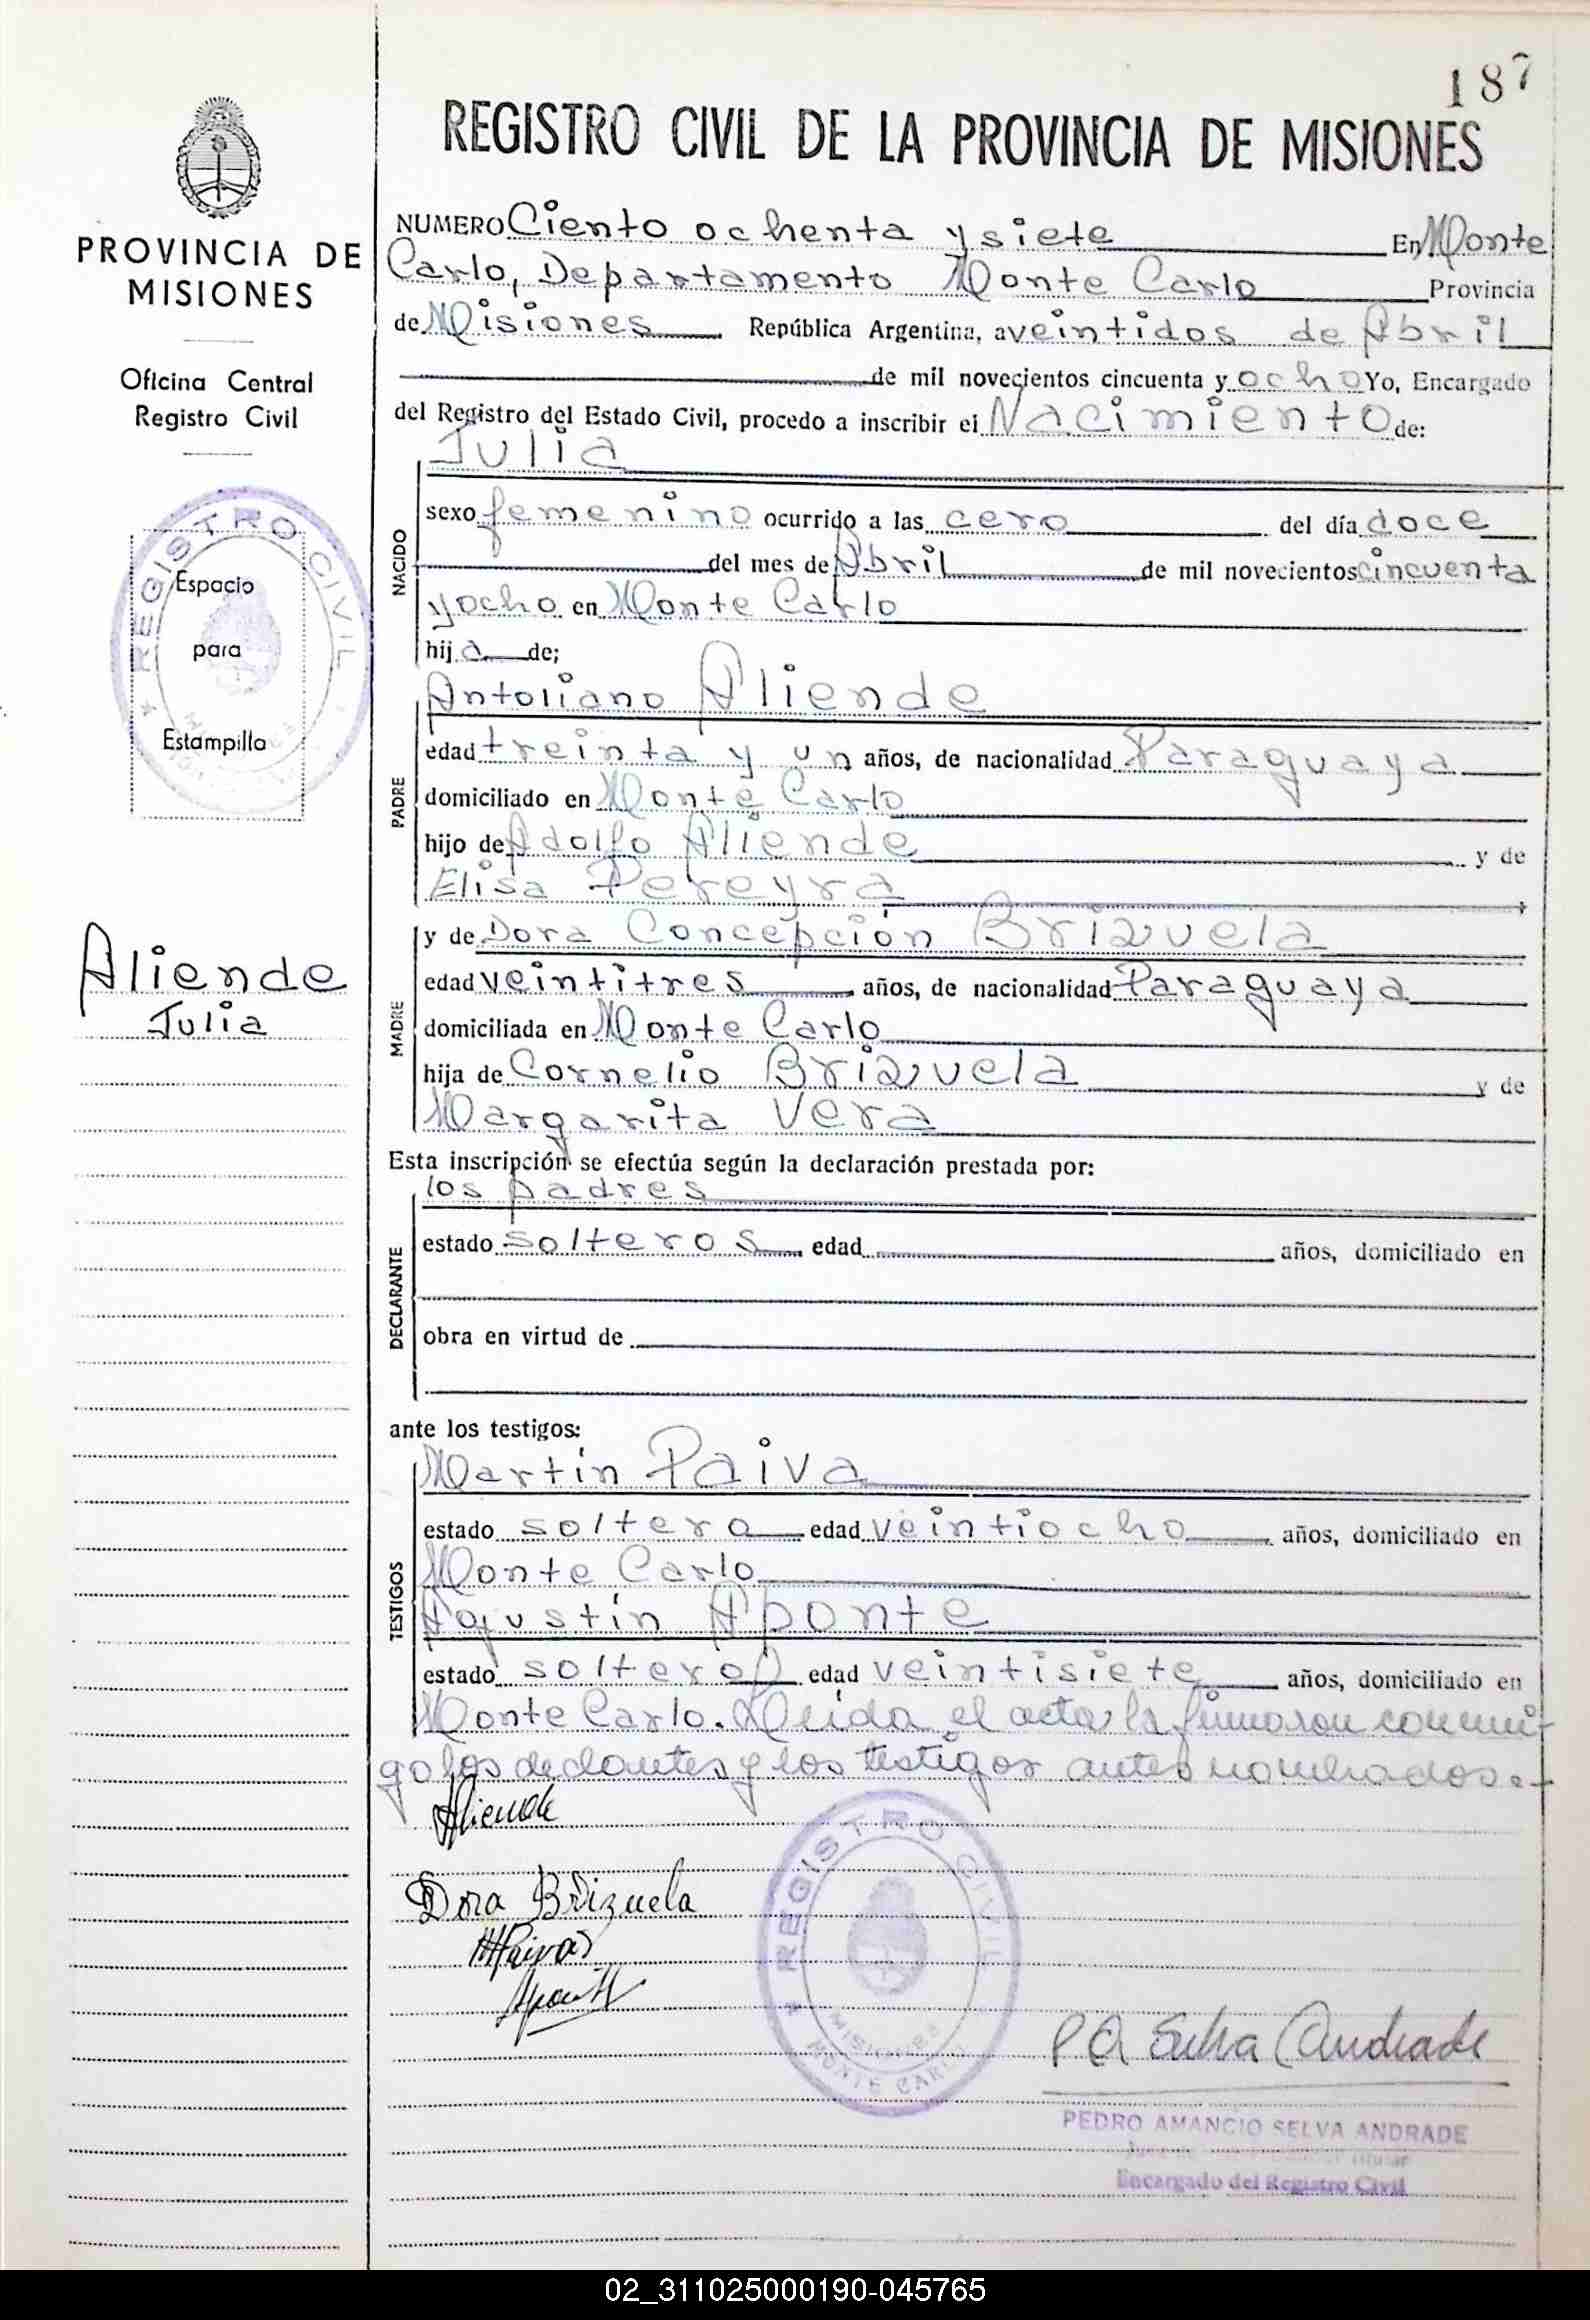 187
REGISTRO CIVIL DE LA PROVINCIA DE MISIONES
PROVINCIA DE
MISIONES
Oficina Central
Registro Civil
REGISTRO CIVIL
Espacio
para
Estampilla
Aliende
Julia
NUMERO Ciento ochenta y siete En Monte
Carlo, Departamento Monte Carlo Provincia
de Misiones República Argentina, a veintidos de Abril
de mil novecientos cincuenta y ocho Yo, Encargado
del Registro del Estado Civil, procedo a inscribir el Nacimiento de:
NACIDO
Julia
sexo femenino ocurrido a las cero del día doce
del mes de Abril de mil novecientos cincuenta
y ocho en Monte Carlo
hija de;
PADRE
Antoliano Aliende
edad treinta y un años, de nacionalidad Paraguaya
domiciliado en Monte Carlo
hijo de Adolfo Aliende y de
Elisa Pereyra
MADRE
y de Dora Concepción Brizuela
edad veintitres años, de nacionalidad Paraguaya
domiciliada en Monte Carlo
hija de Cornelio Brizuela y de
Margarita Vera
Esta inscripción se efectúa según la declaración prestada por:
DECLARANTE
los padres
estado solteros edad años, domiciliado en
obra en virtud de
ante los testigos:
TESTIGOS
Martín Paiva
estado soltero edad veintiocho años, domiciliado en
Monte Carlo
Agustín Aponte
estado soltero edad veintisiete años, domiciliado en
Monte Carlo. Leida el acta la firmaron conmi-
go los declantes y los testigos antes nombrados.-
Aliende
Dora Brizuela
MPaiva
Aponte
REGISTRO CIVIL
MISIONES
MONTE CARLO
P A Selva Andrade
PEDRO AMANCIO SELVA ANDRADE
Encargado del Registro Civil
02_311025000190-045765